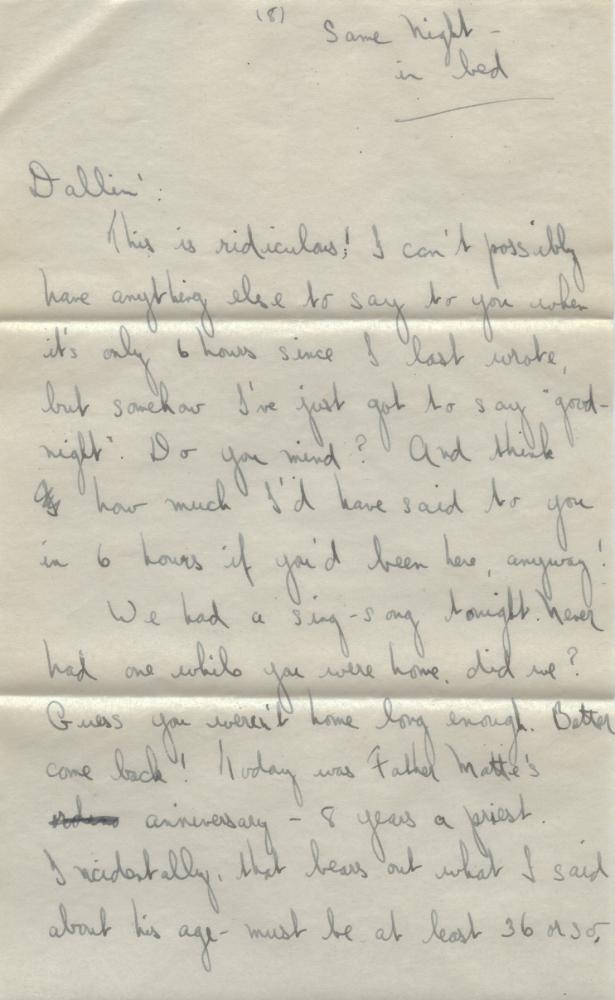 (8)
Same Night -
in bed
Dallin':
This is ridiculous! I can't possibly
have anything else to say to you when
it's only 6 hours since I last wrote,
but somehow I've just got to say "good-
night". Do you mind? And think
how much I'd have said to you
in 6 hours if you'd been here, anyway!
We had a sing-song tonight. Never
had one while you were home, did we?
Guess you weren't home long enough. Better
come back! Today was Father Matte's
anniversary - 8 years a priest.
Incidentally, that bears out what I said
about his age - must be at least 36 or 35,